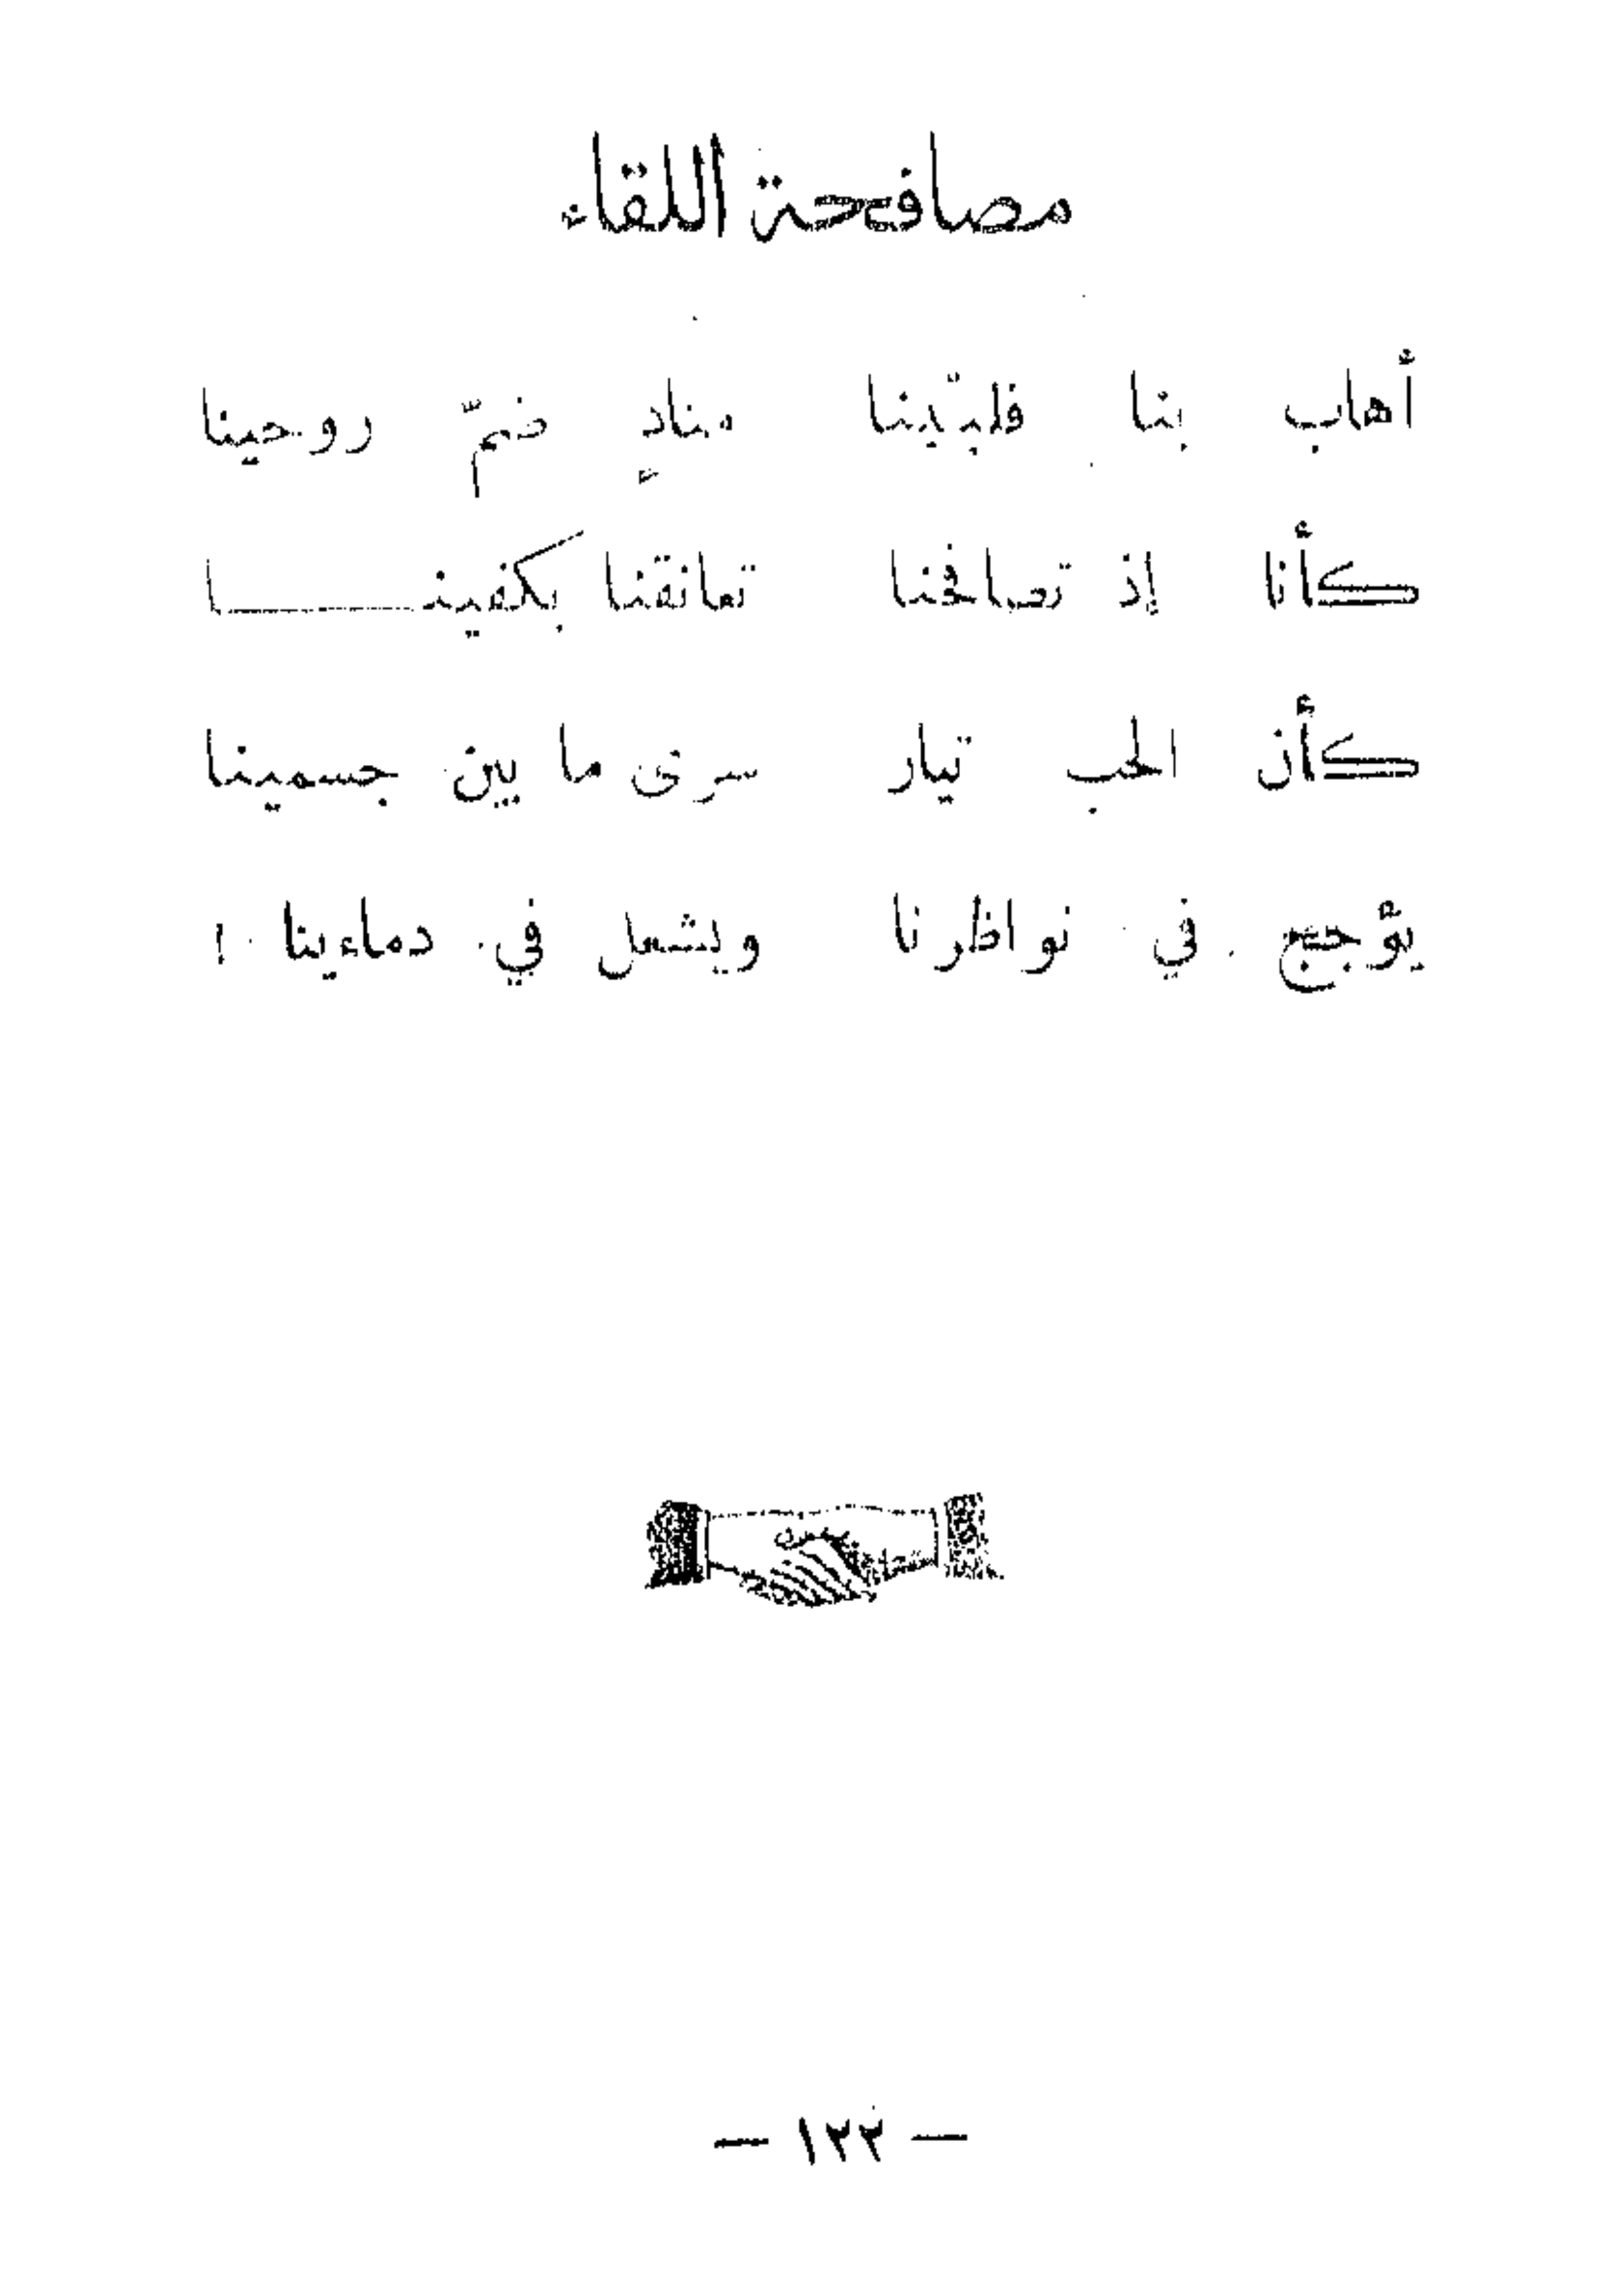 مصافحة اللقاء
أهاب بنا فلبّينا منادٍ ضمّ روحينا
كأنا إذ تصافحنا تعانقنا بكفينـــــــا
كأن الحب تيار سرى ما بين جسمينا
يؤجج في نواظرنا ويشعل في دماءينا !
— ١٢٢ —